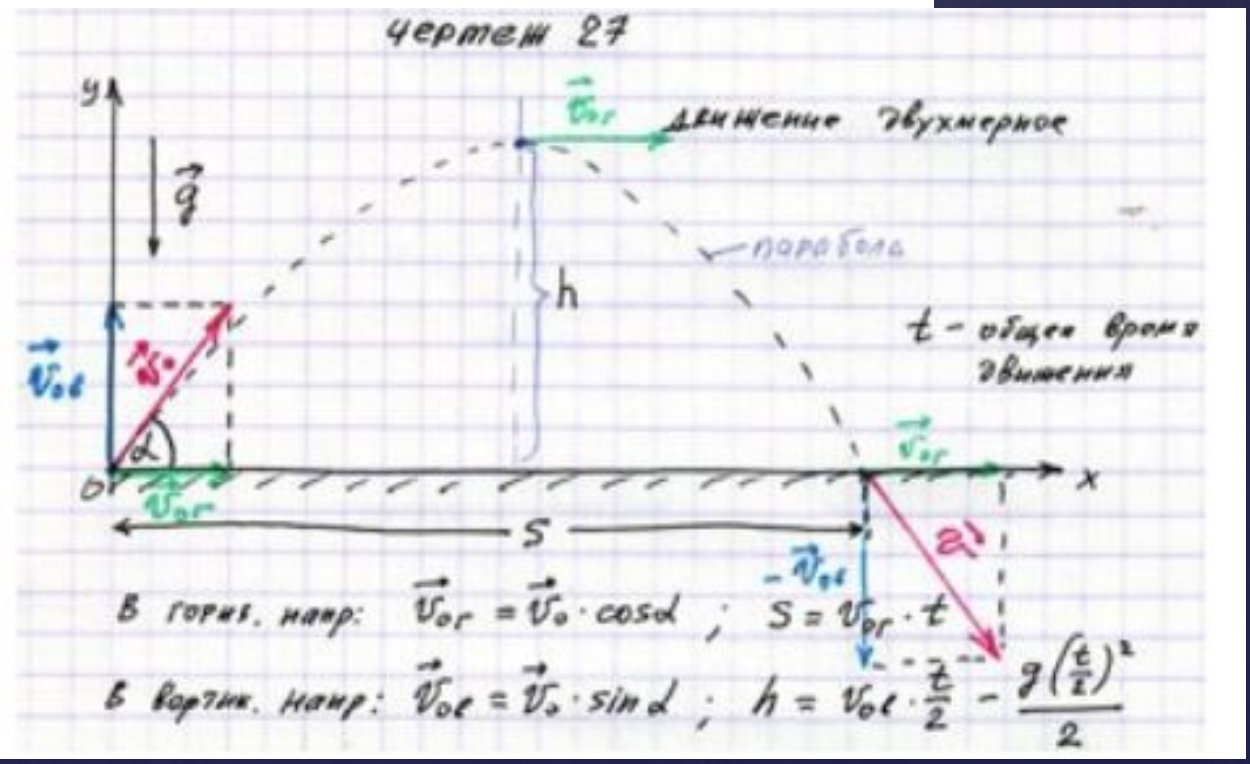 чертеж 27
y
v⃗ог
движение двухмерное
g⃗
парабола
h
t - общее время
движения
v⃗ов
v⃗о
α
v⃗ог
0
v⃗ог
x
S
-v⃗ов
В гориз. напр: v⃗ог = v⃗о · cosα ; S = vог · t
В вертик. напр: v⃗ов = v⃗о · sinα ; h = vов · t/2 - g(t/2)²/2